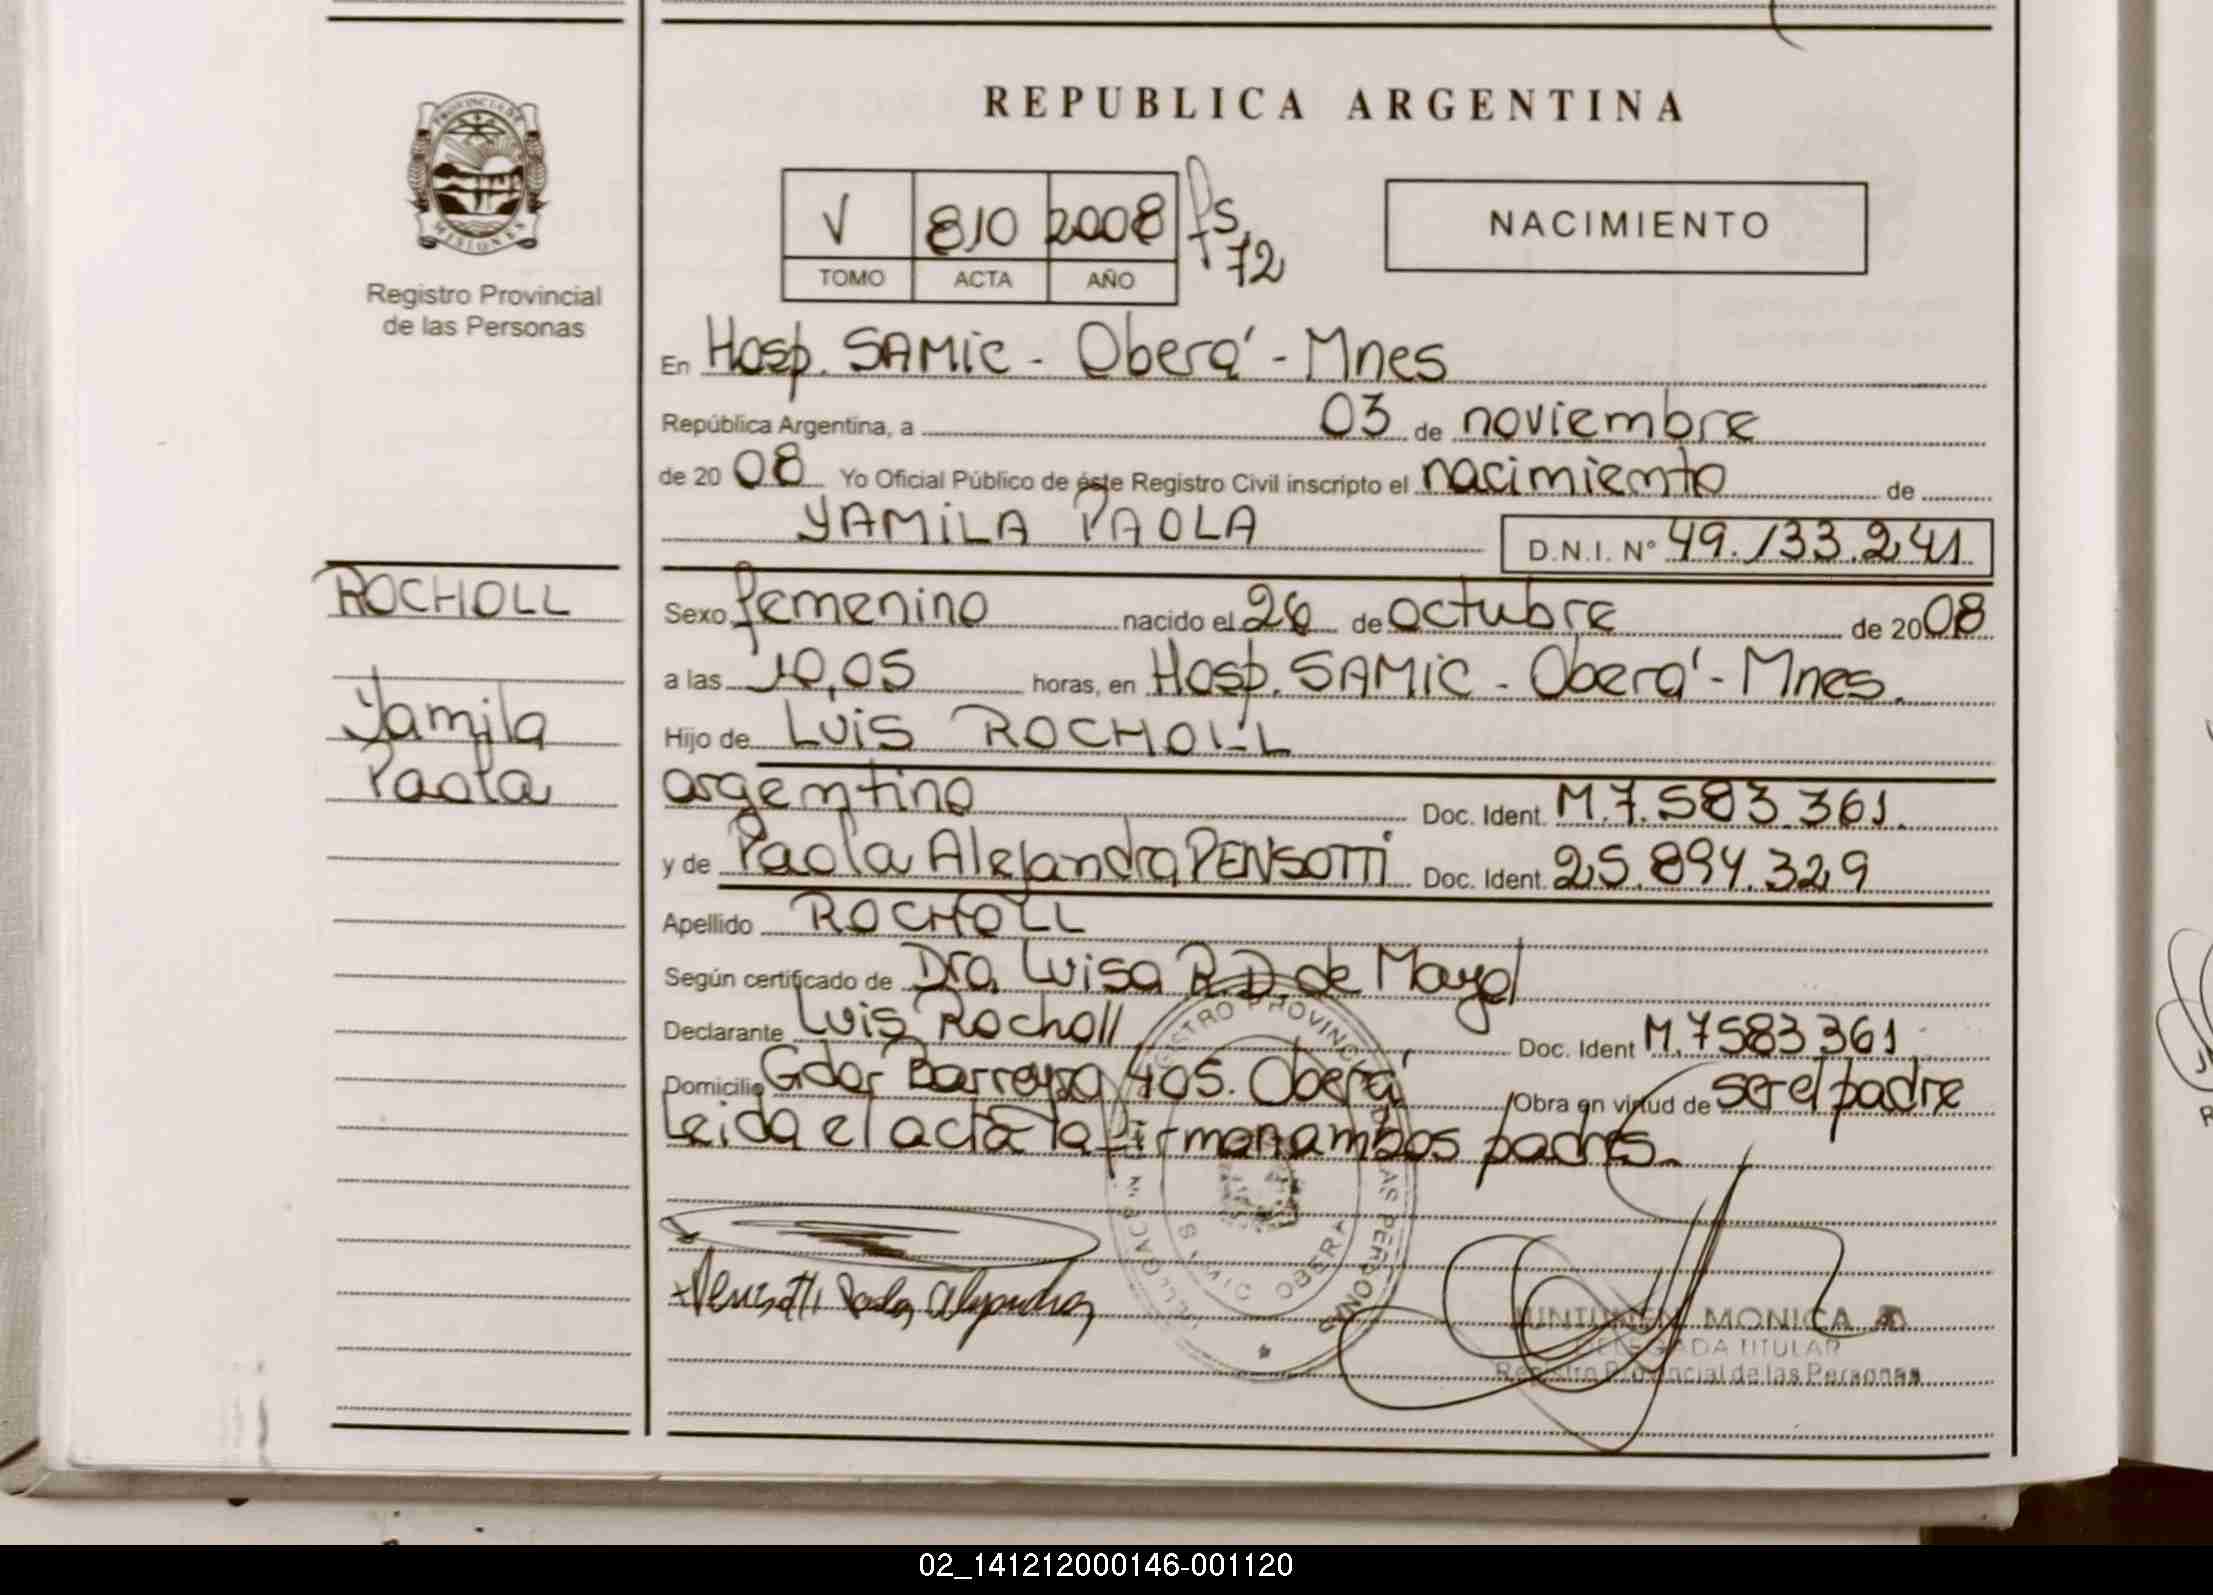 REPUBLICA ARGENTINA
PROVINCIA DE
MISIONES
Registro Provincial
de las Personas
V 810 2008 fs.
72
TOMO ACTA AÑO
NACIMIENTO
En Hosp. SAMIC - Oberá - Mnes
República Argentina, a 03 de noviembre
de 20 08 Yo Oficial Público de éste Registro Civil inscripto el nacimiento de
YAMILA PAOLA D.N.I. Nº 49.133.241
ROCHOLL
Yamila
Paola
Sexo femenino nacido el 26 de octubre de 20 08
a las 10,05 horas, en Hosp. SAMIC - Oberá - Mnes.
Hijo de Luis ROCHOLL
argentino Doc. Ident. M.7.583.361.
y de Paola Alejandra PENSOTTI Doc. Ident. 25.894.329
Apellido ROCHOLL
Según certificado de Dra. Luisa R.D. de Mayol
Declarante Luis Rocholl Doc. Ident M.7583361
Domicilio Gdor Barreyra 405. Oberá Obra en virtud de ser el padre
Leida el acta la firman ambos padres.
REGISTRO PROVINCIAL DE LAS PERSONAS
OBERA
Pensotti Paola Alejandra
MONICA
DELEGADA TITULAR
Registro Provincial de las Personas
02_141212000146-001120